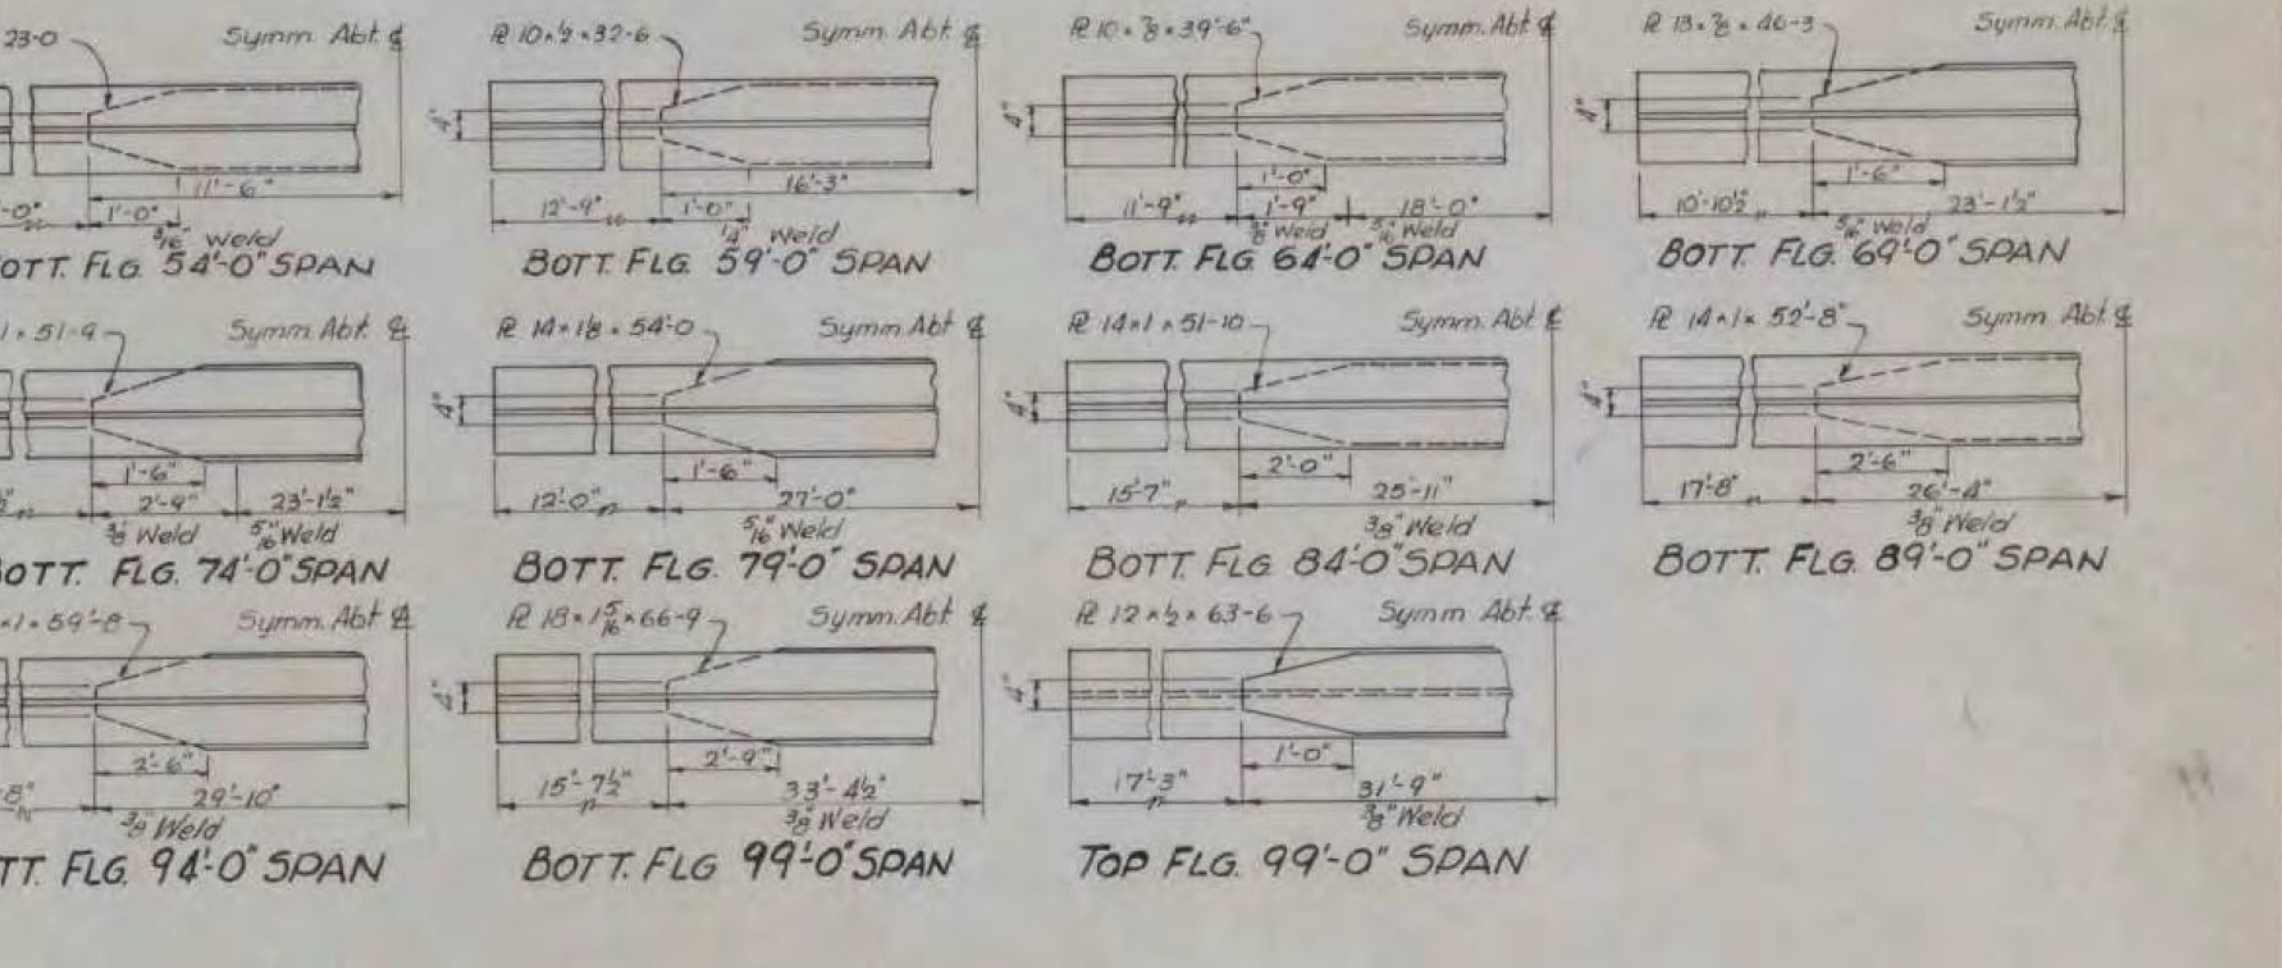 23-0 Symm. Abt. ℄
11'-6"
1'-0"
3/16" Weld
OTT. FLG. 54'-0" SPAN
℞ 10 x 1/2 x 32-6 Symm. Abt. ℄
4"
16'-3"
12'-9" 1'-0"
1/4" Weld
BOTT. FLG. 59'-0" SPAN
℞ 10 x 7/8 x 39'-6" Symm. Abt. ℄
4"
1'-0"
11'-9" 1'-9" 18'-0"
3/8" Weld 5/16" Weld
BOTT. FLG. 64'-0" SPAN
℞ 13 x 7/8 x 46-3 Symm. Abt. ℄
4"
1'-6"
10'-10½" 23'-1½"
5/16" Weld
BOTT. FLG. 69'-0" SPAN
1 x 51-9 Symm. Abt. ℄
1'-6"
2'-9" 23'-1½"
3/8" Weld 5/16" Weld
OTT. FLG. 74'-0" SPAN
℞ 14 x 1⅛ x 54-0 Symm. Abt ℄
4"
1'-6"
12'-0" 27'-0"
5/16" Weld
BOTT. FLG. 79'-0" SPAN
℞ 14 x 1 x 51-10 Symm. Abt ℄
4"
2'-0"
15'-7" 25'-11"
3/8" Weld
BOTT. FLG. 84'-0" SPAN
℞ 14 x 1 x 52'-8" Symm. Abt. ℄
4"
2'-6"
17'-8" 26'-4"
3/8" Weld
BOTT. FLG. 89'-0" SPAN
x 1 x 59'-8 Symm. Abt ℄
2'-6"
8" 29'-10"
3/8" Weld
TT. FLG. 94'-0" SPAN
℞ 18 x 1 5/16 x 66-9 Symm. Abt ℄
4"
2'-9"
15'-7½" 33'-4½"
3/8" Weld
BOTT. FLG 99'-0" SPAN
℞ 12 x 1/2 x 63-6 Symm Abt. ℄
4"
1'-0"
17'-3" 31'-9"
3/8" Weld
TOP FLG. 99'-0" SPAN